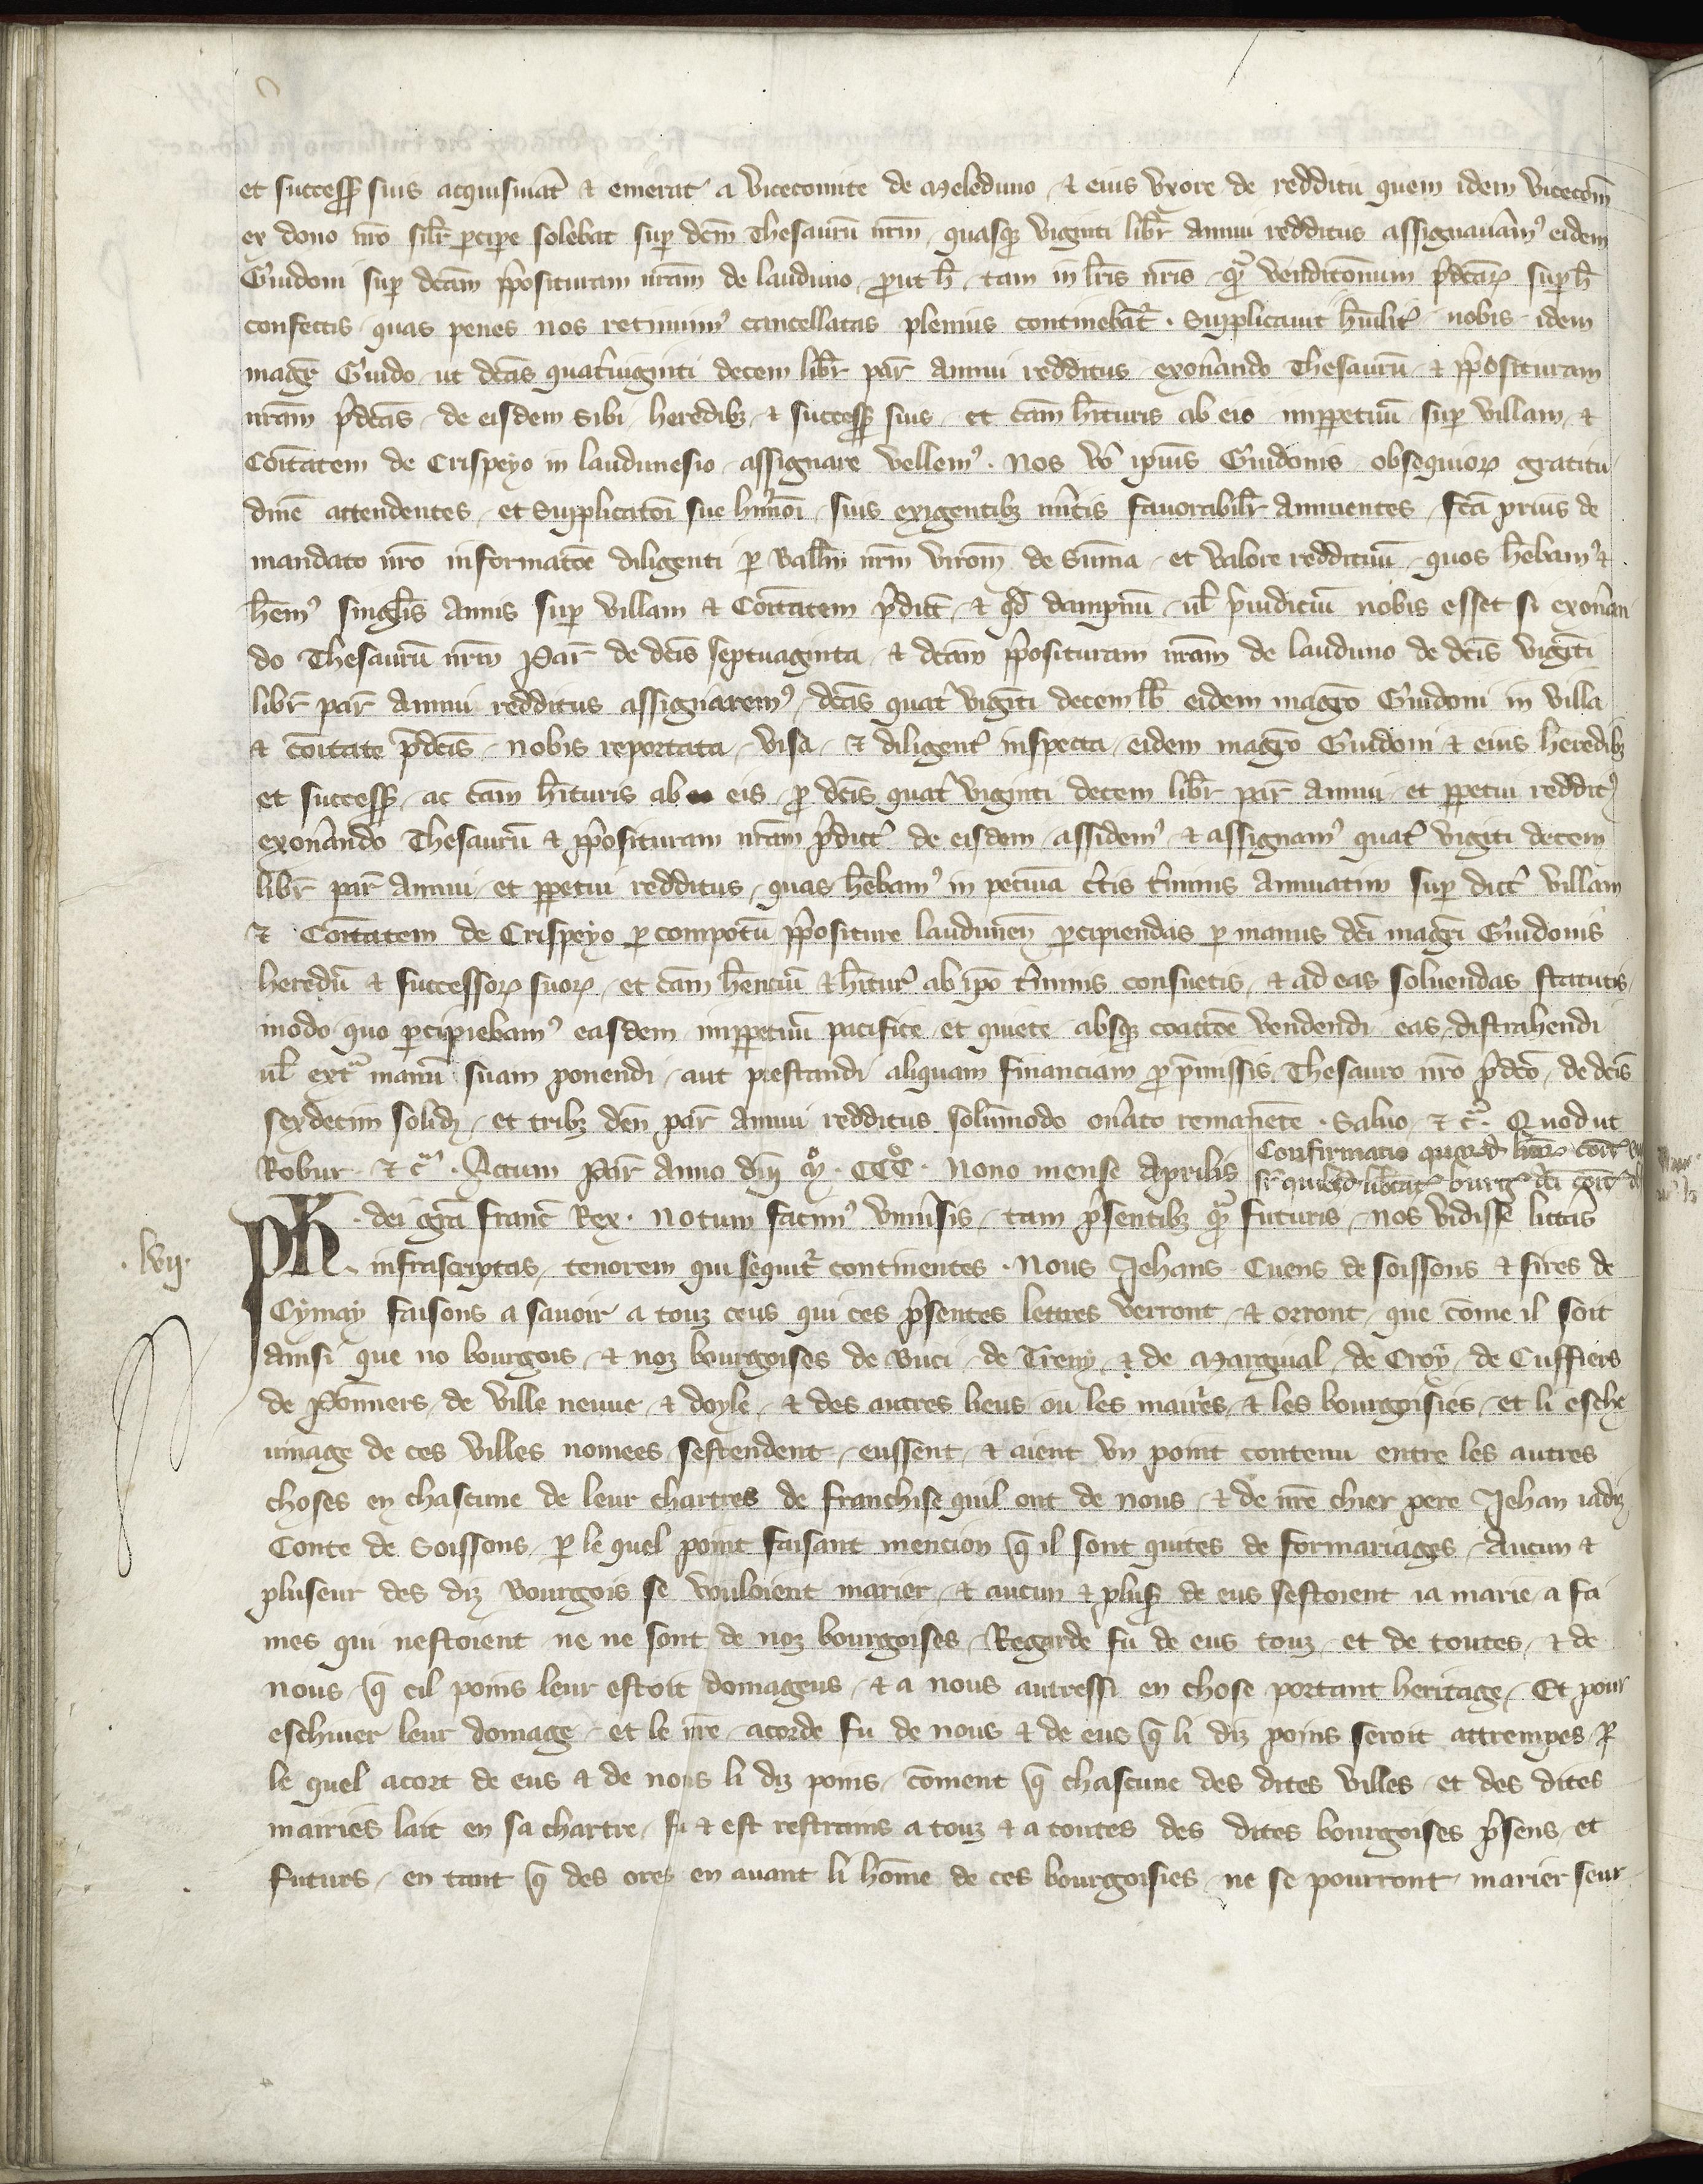 et success̃ suis acquisiuat̃ ⁊ emerat a vicecomite de Meleduno ⁊ eius vxore de redditu quem idem vicecom̃
ex dono nr̃o silr̃ ꝑcipe solebat suꝑ dcm̃ Thesaurũ nr̃m quasqꝫ viginti libr̃ annui redditus assignauam̾ eidem
Guidoni suꝑ dcãm p̃posituram nr̃am de lauduno ꝓut h̃ tam in lr̃is nr̃is qᷓ venditonum p̃dcãꝝ suꝑ h̃
confectis quas penes nos retinuim̾ cancellatas plenius continebat̃ . Supplicauit hũilit̃ nobis idem
magr̃ Guido ut dcãs quat̾uiginti decem libr̃ par̃ annui redditus exon̾ando Thesaurũ ⁊ p̃posituram
nr̃am p̃dcãs de eisdem sibi heredibꝫ ⁊ success̃ suis et cãm h̾ituris ab eis imꝑpetuũ suꝑ villam ⁊
Coĩtatem de Crispeyo in laudunesio assignare vellem̾ . Nos vo ip̃ius Guidonis obsequioꝝ gratitu
dinẽ attendentes et supplicatoĩ sue hmõi suis exigentibꝫ m̾itis fauorabilr̃ annuentes fcã prius de
mandato nr̃o informatõe diligenti ꝑ Ballm̃ nr̃m virom̃ de Suma et valore reddituũ quos h̾ebam̾ ⁊
h̾em̾ singlĩs annis suꝑ villam ⁊ Coĩtatem p̃dict̃ ⁊ qd̃ dampnũ ul̃ p̃iudiciũ nobis esset si exon̾an
do Thesaurũ nr̃m Par̃ de dcĩs septuaginta ⁊ dcãm p̃posituram nr̃am de lauduno de dcĩs vigĩti
libr̃ par̃ annui redditus assignarem̾ dcãs quat̾ vigĩti decem lb̃ eidem magr̃o Guidoni in villa
⁊ cõitate p̃dcĩs nobis reportata visa ⁊ diligent̾ inspecta eidem magr̃o Guidoni ⁊ eius heredibꝫ
et success̃ ac cãm h̾ituris ab eis ꝓ dcĩs quat̾ viginti decem libr̃ par̃ annui et ꝑpetui reddit̾
exon̾ando Thesaurũ ⁊ p̃posituram nr̃am p̃dict̃ de eisdem assidem̾ ⁊ assignam̾ quat̾ vigĩti decem
libr̃ par̃ annui et ꝑpetui redditus quas h̾ebam̾ in pecunia c̾tis t̾minis annuatim suꝑ dict̃ villam
⁊ Coĩtatem de Crispeyo ꝑ compotũ p̃positure laudunen̾ ꝑcipiendas ꝑ manus dcĩ magr̃i Guidonis
heredũ ⁊ successoꝝ suoꝝ et cãm h̾enciũ ⁊ h̾itur̾ ab ip̃o t̾minis consuetis ⁊ ad eas soluendas statutis
modo quo ꝑcipiebam̾ easdem imꝑpetuũ pacifice et quiete absqꝫ coactõe vendendi eas distrahendi
ul̃ extᷓ manũ suam ponendi aut prestandi aliquam financiam ꝓ p̃missis Thesauro nr̃o p̃dcõ de dcĩs
sexdecim solid̃ et tribꝫ den̾ par̃ annui redditus solũmodo on̾ato remanẽte . Saluo ⁊ cᷓ . Quod ut
Robur ⁊ cᷓ . Actum Par̃ Anno dñi mͦ . CCCͦ . Nono mense Aprilis
Confirmatio
Ph̃ . dei gr̃a Franc̃ Rex . Notum facim̾ vniu̾sis tam p̃sentibꝫ qᷓ futuris nos vidisse litt̃as
.lvij. infrascriptas tenorem qui sequit̃ continentes . Nous Jehans Cuens de soissons ⁊ sires de
Cymay faisons a sauoir a touz ceus qui ces p̃sentes lettres verront ⁊ orront que cõme il soit
ainsi que no bourgois ⁊ noz bourgoises de Buci de Treny ⁊ de Marginal de Croy de Cuffiers
de Pom̃iers de ville neuue ⁊ doyle ⁊ des autres lieus ou les mair̾es ⁊ les bourgoisies et li esche
uinage de ces villes nomees sestendent eussent ⁊ aient vn point contenu entre les autres
choses en chascune de leur chartres de franchise quil ont de nous ⁊ de nr̃e chier pere Jehan iadiz
Conte de Soissons ꝑ le quel point faisant mencion q̃ il sont quites de formariages Aucun ⁊
pluseur des diz Bourgois se vouloient marier ⁊ aucun ⁊ plus̾ de eus sestoient ia marie a fa
mes qui nestoient ne ne sont de noz bourgoises Regarde fu de eus touz et de toutes ⁊ de
nous q̃ cil poins leur estoit domageus ⁊ a nous autressi en chose portant heritage Et pour
eschiuer leur domage et le nr̃e acorde fu de nous ⁊ de eus q̃ li diz poins seroit attrempes ꝑ
le quel acort de eus ⁊ de nous li diz poins cõment q̃ chascune des dites villes et des dites
mairies lait en sa chartre fu ⁊ est restrains a touz ⁊ a toutes des dites bourgoises p̃sens et
futurs en tant q̃ des ores en auant li hõme de ces bourgoisies ne se pourront marier seur